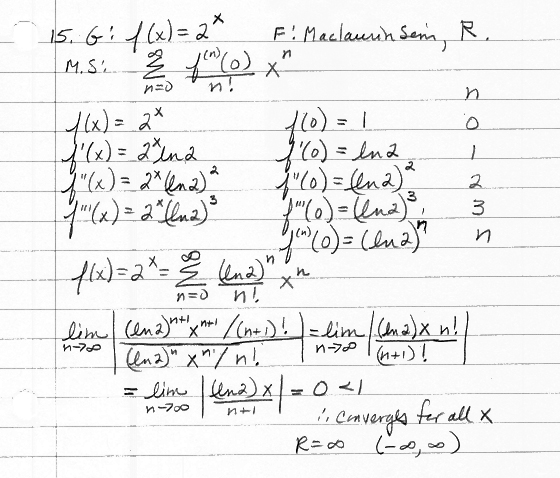 15. G: f(x) = 2^x F: Maclaurin Seri, R.
M.S: ∑_{n=0}^{∞} f^{(n)}(0)/n! x^n
n
f(x) = 2^x f(0) = 1 0
f'(x) = 2^x ln2 f'(0) = ln2 1
f''(x) = 2^x (ln2)^2 f''(0) = (ln2)^2 2
f'''(x) = 2^x (ln2)^3 f'''(0) = (ln2)^3, 3
f^{(n)}(0) = (ln2)^n n
f(x) = 2^x = ∑_{n=0}^{∞} (ln2)^n/n! x^n
lim_{n→∞} | ((ln2)^{n+1} x^{n+1} / (n+1)!) / ((ln2)^n x^n / n!) | = lim_{n→∞} | (ln2) x n! / (n+1)! |
= lim_{n→∞} | (ln2) x / (n+1) | = 0 < 1
∴ converges for all x
R = ∞ (-∞, ∞)